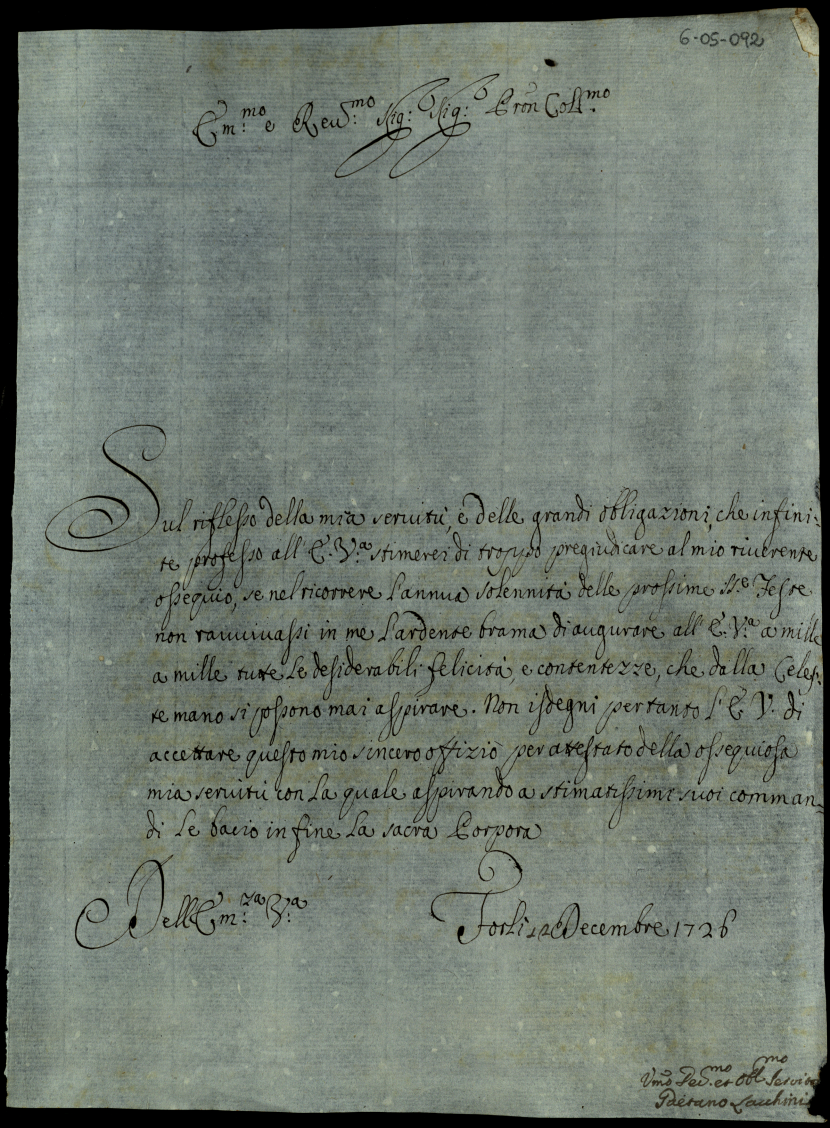 6-05-092
Em:mo e Reu:mo Sig:o Sig:o Pron Coll:mo
Sul riflesso della mia seruitù, e delle grandi obligazioni, che infini-
te professo all' E. V:a stimerei di troppo pregiudicare al mio riuerente
ossequio, se nel ricorrere l'annua solennità delle prossime SS:e Feste
non rauuiuassi in me l'ardente brama di augurare all' E. V:a a mille
a mille tutte le desiderabili felicità, e contentezze, che dalla Celes-
te mano si possono mai aspirare. Non isdegni per tanto l' E. V. di
accettare questo mio sincero offizio per attestato della ossequiosa
mia seruitù con la quale aspirando a stimatissimi suoi comman=
di le bacio in fine la sacra Porpora
Dell' Em:za V:a
Forlì 12 Decembre 1726
Vmo Deu:mo et Obl:mo Seruitor
Gaetano Lacchini